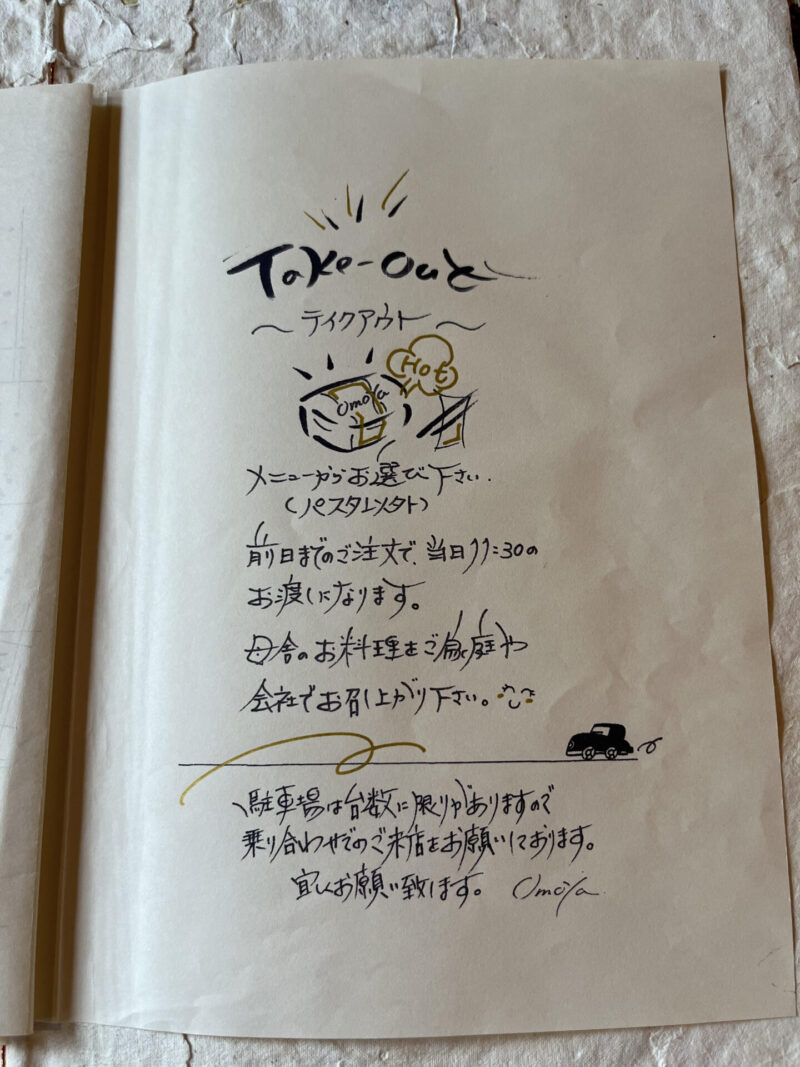 Take-Out
〜 テイクアウト 〜
Hot
Omoya
メニューからお選び下さい.
(パスタ以外)
前日までのご注文で、当日11:30の
お渡しになります。
母舎のお料理をご家庭や
会社でお召し上がり下さい。
駐車場は台数に限りがありますので
乗り合わせでのご来店をお願いしております。
宜しくお願い致します。 Omoya